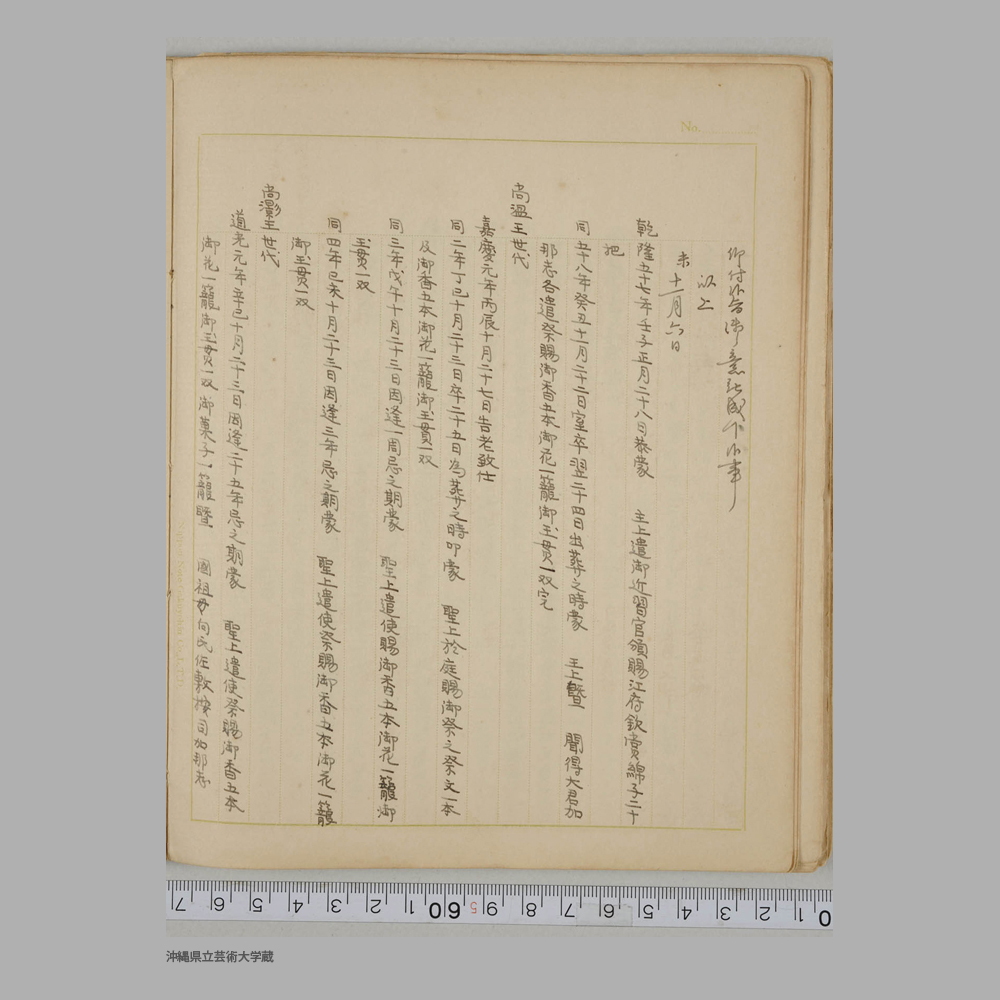 No.
以上
未十一月六日
乾隆五十七年壬子正月二十八日恭蒙 主上遣御近習官頒賜江府欽賞綿子二十
把
同 五十八年癸丑十一月二十二日室卒翌二十四日出葬之時蒙 王上曁 聞得大君加
那志各遣祭賜御香五本御花一籠御玉貫一双宛
尚温王世代
嘉慶元年丙辰十月二十七日告老致仕
同 二年丁巳十月二十三日卒二十五日為葬之時叩蒙 聖上於庭賜御祭之祭文一本
及御香五本御花一籠御玉貫一双
同 三年戊午十月二十三日因逢一周忌之期蒙 聖上遣使賜御香五本御花一籠御
玉貫一双
同 四年己未十月二十三日因逢三年忌之期蒙 聖上遣使祭賜御香五本御花一籠
御玉貫一双
尚灝王世代
道光元年辛巳十月二十三日因逢二十五年忌之期蒙 聖上遣使祭賜御香五本
御花一籠御玉貫一双御菓子一籠曁 國祖母向氏佐敷按司加那志
7 6 5 4 3 2 1 60 5 9 8 7 6 5 4 3 2 1 0
沖縄県立芸術大学蔵